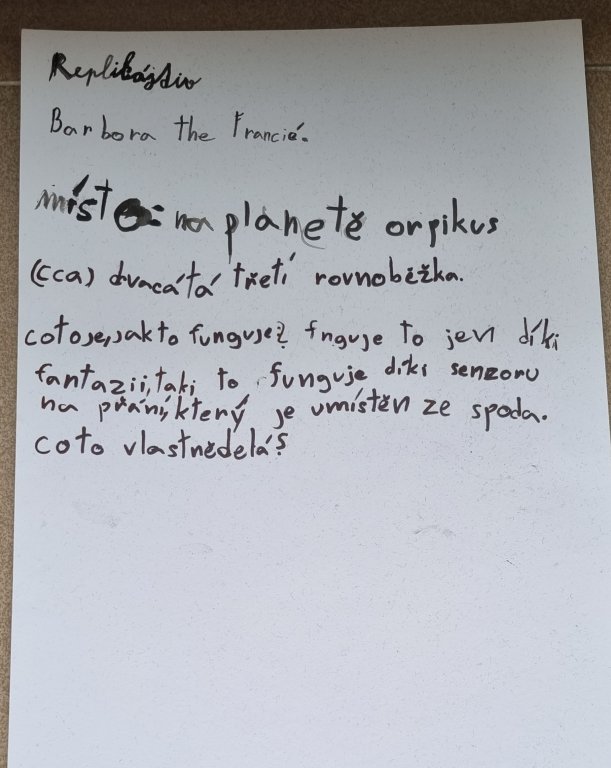 Replikástiv
Barbora the Francié.
místo: na planetě orpikus
(cca) dvacátá třetí rovnoběžka.
cotoje,jak to funguje? fnguje to jen díki
fantazii,taki to funguje díki senzoru
na přání,který je umístěn ze spoda.
coto vlastnědelá?